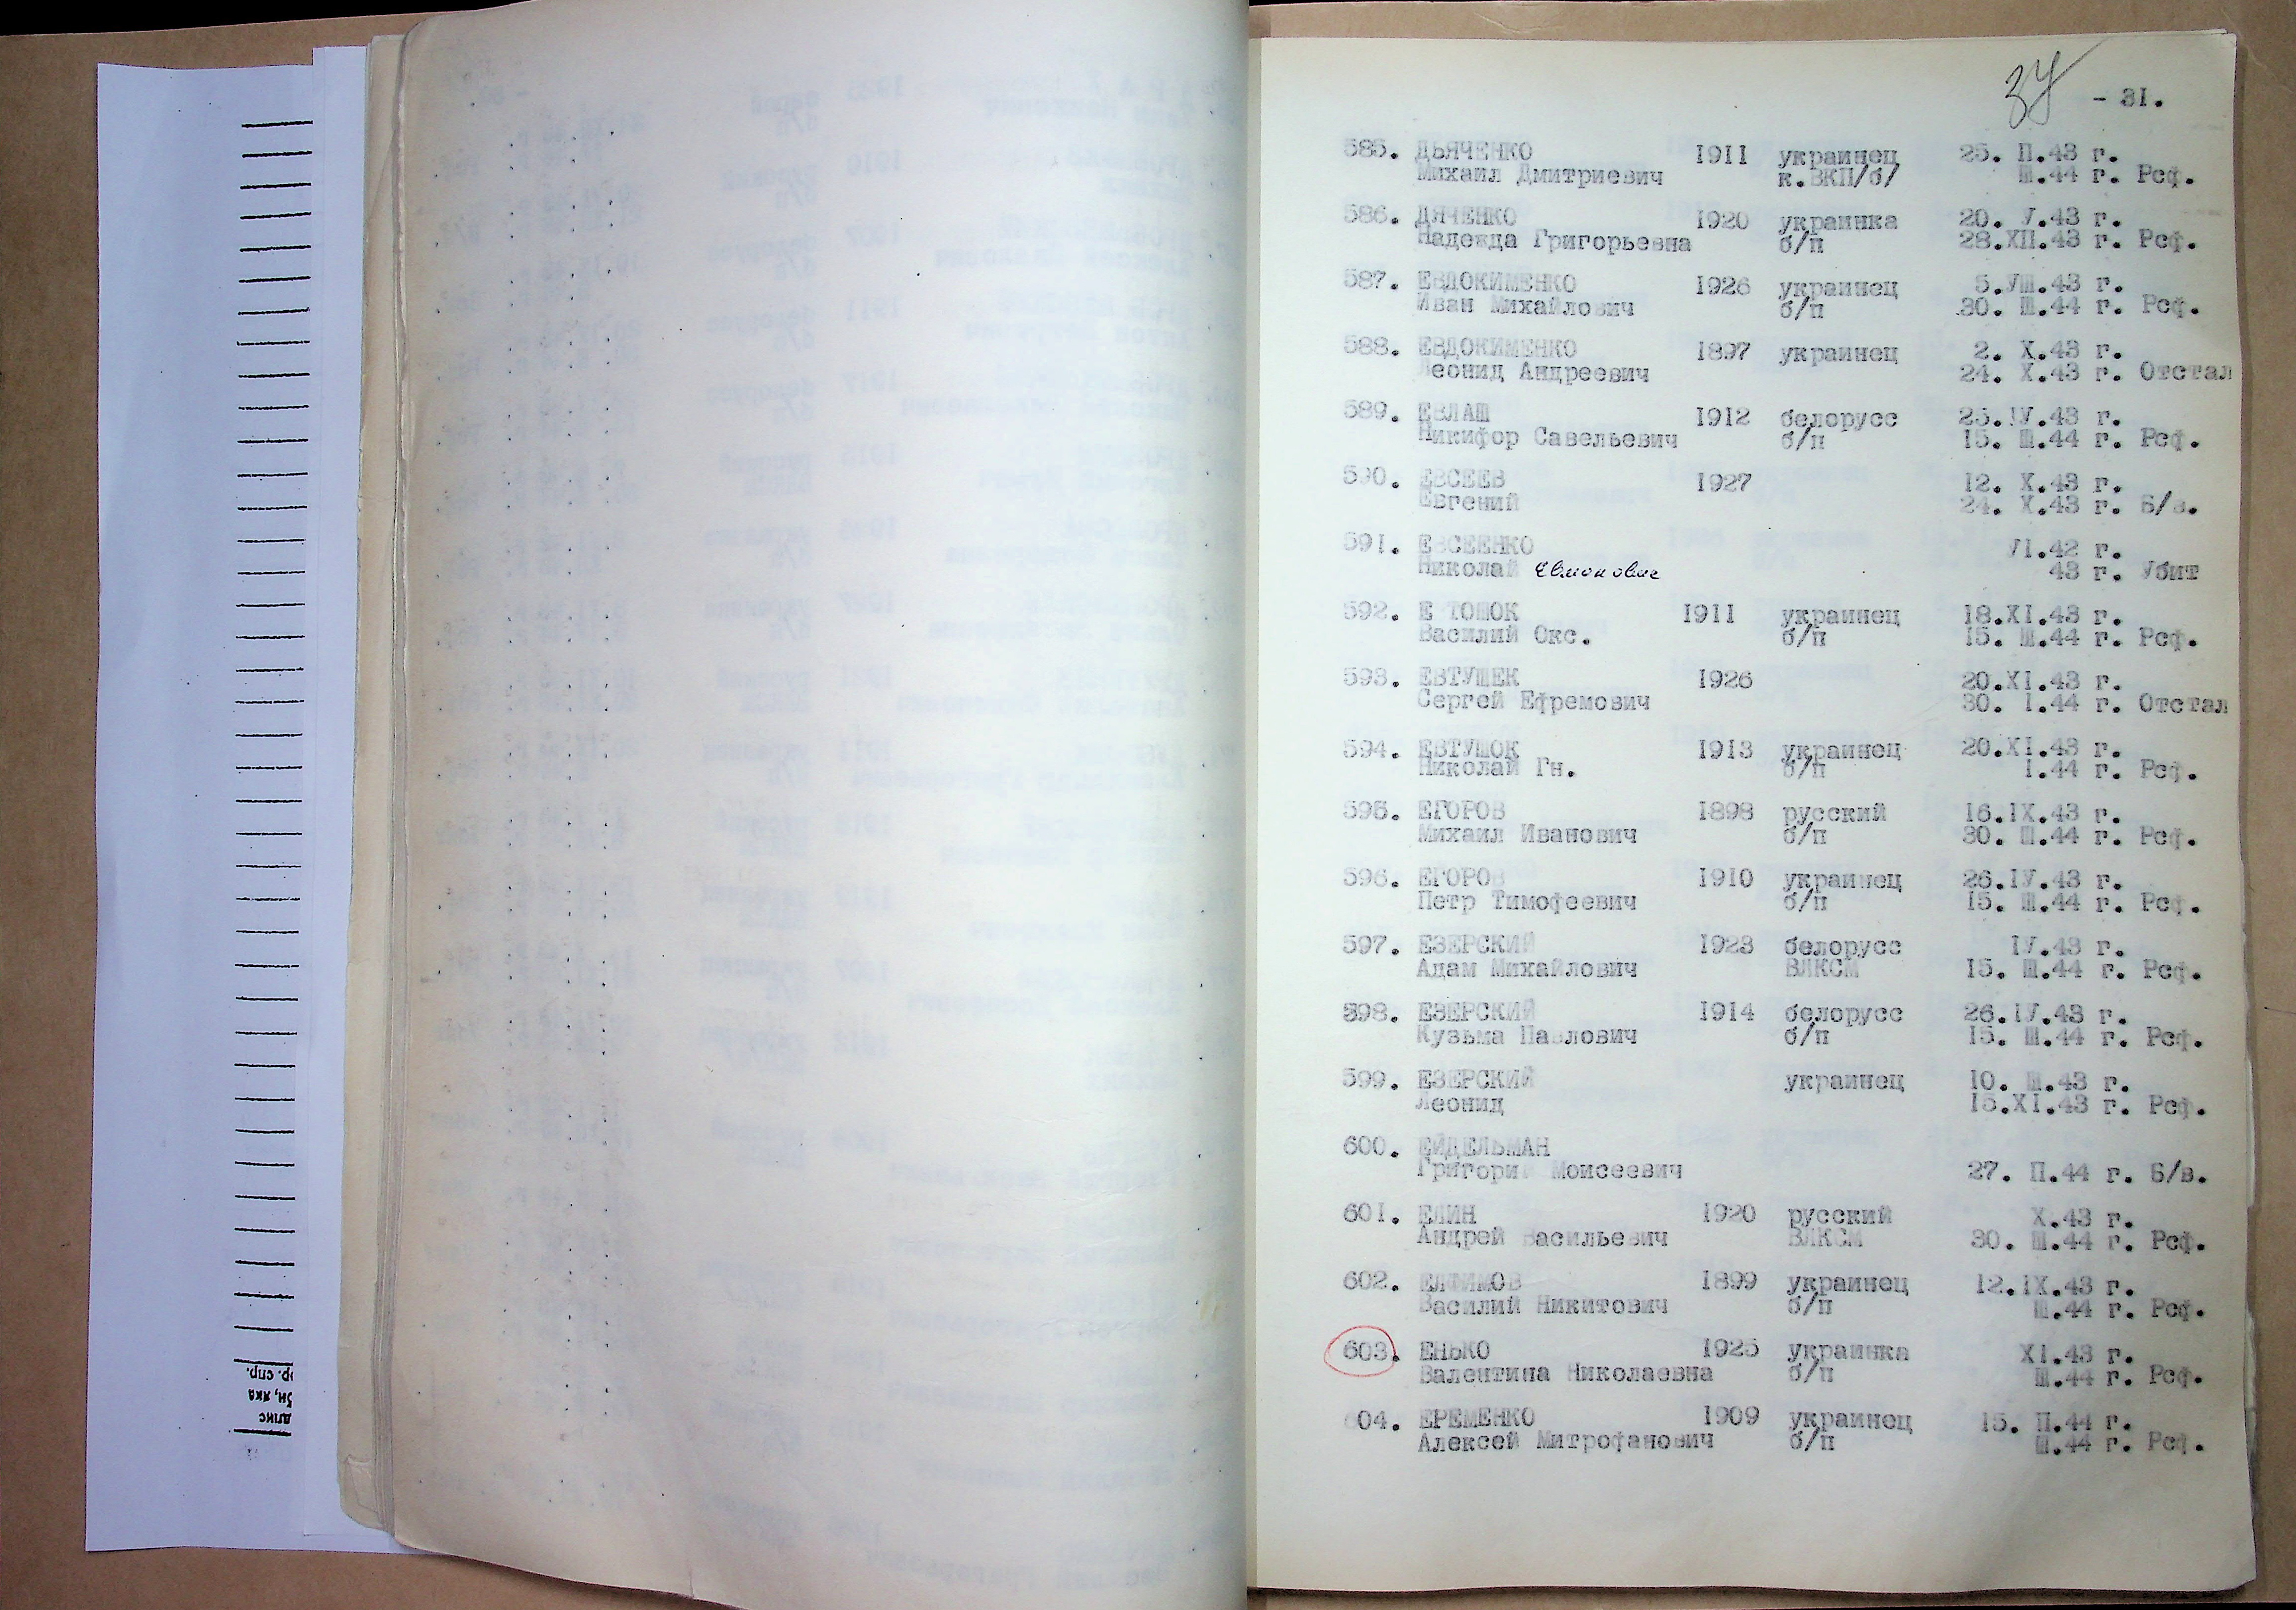 37
- 31.
585. ДЬЯЧЕНКО 1911 украинец 25. П.43 г.
Михаил Дмитриевич к.ВКП/б/ Ш.44 г. Рсф.
586. ДЯЧЕНКО 1920 украинка 20. У.43 г.
Надежда Григорьевна б/п 28.ХП.43 г. Рсф.
587. ЕВДОКИМЕНКО 1926 украинец 5.УШ.43 г.
Иван Михайлович б/п 30. Ш.44 г. Рсф.
588. ЕВДОКИМЕНКО 1897 украинец 2. Х.43 г.
Леонид Андреевич 24. Х.43 г. Отстал
589. ЕВЛАШ 1912 белорусс 25.IУ.43 г.
Никифор Савельевич б/п 15. Ш.44 г. Рсф.
590. ЕВСЕЕВ 1927 12. Х.43 г.
Евгений 24. Х.43 г. Б/в.
591. ЕВСЕЕНКО УI.42 г.
Николай 43 г. Убит
592. Е ТОШОК 1911 украинец 18.ХI.43 г.
Василий Окс. б/п 15. Ш.44 г. Рсф.
593. ЕВТУШЕК 1926 20.ХI.43 г.
Сергей Ефремович 30. I.44 г. Отстал
594. ЕВТУШОК 1913 украинец 20.ХI.43 г.
Николай Гн. б/п I.44 г. Рсф.
595. ЕГОРОВ 1898 русский 16.IХ.43 г.
Михаил Иванович б/п 30. Ш.44 г. Рсф.
596. ЕГОРОВ 1910 украинец 26.IУ.43 г.
Петр Тимофеевич б/п 15. Ш.44 г. Рсф.
597. ЕЗЕРСКИЙ 1923 белорусс IУ.43 г.
Адам Михайлович ВЛКСМ 15. Ш.44 г. Рсф.
598. ЕЗЕРСКИЙ 1914 белорусс 26.IУ.43 г.
Кузьма Павлович б/п 15. Ш.44 г. Рсф.
599. ЕЗЕРСКИЙ украинец 10. Ш.43 г.
Леонид 15.ХI.43 г. Рсф.
600. ЕЙДЕЛЬМАН
Григорий Моисеевич 27. П.44 г. Б/в.
601. ЕЛИН 1920 русский Х.43 г.
Андрей Васильевич ВЛКСМ 30. Ш.44 г. Рсф.
602. ЕЛФИМОВ 1899 украинец 12.IХ.43 г.
Василий Никитович б/п Ш.44 г. Рсф.
603. ЕНЬКО 1925 украинка ХI.43 г.
Валентина Николаевна б/п Ш.44 г. Рсф.
604. ЕРЕМЕНКО 1909 украинец 15. П.44 г.
Алексей Митрофанович б/п Ш.44 г. Рсф.